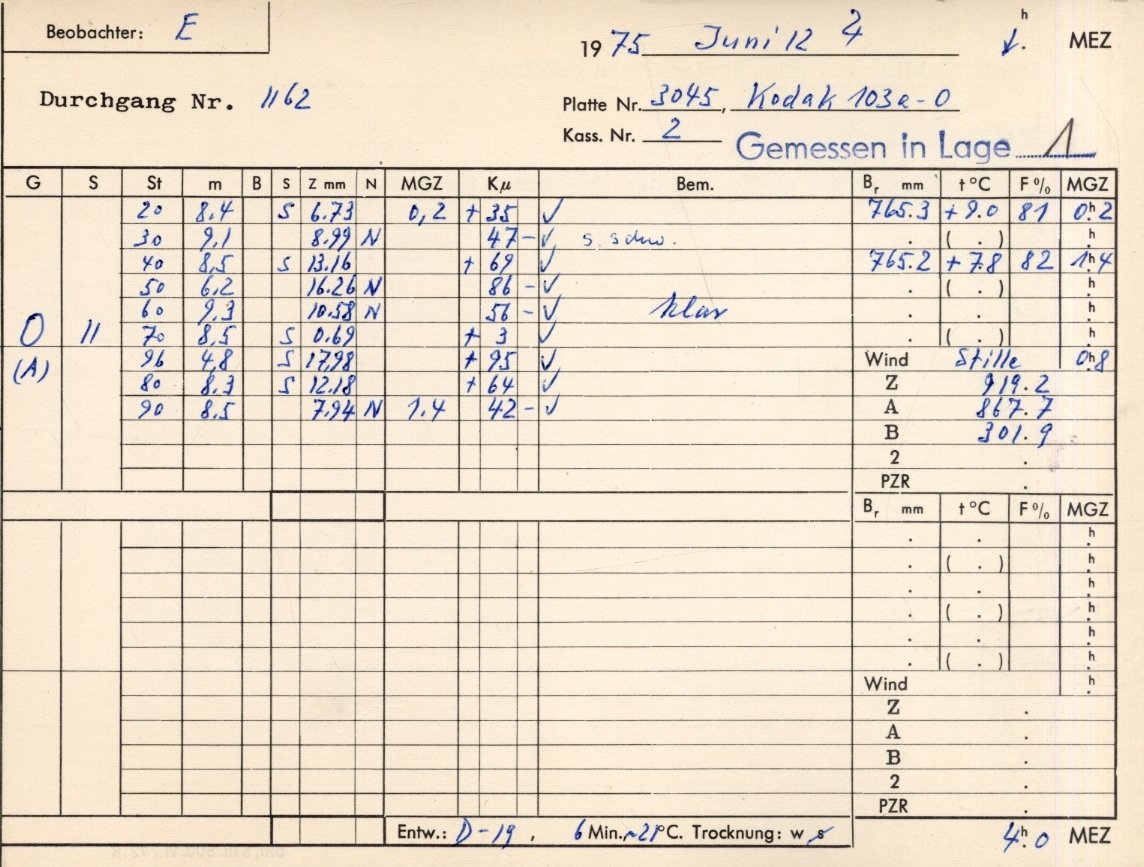 Beobachter: E
1975 Juni 12 4 h MEZ
Durchgang Nr. 1162
Platte Nr. 3045, Kodak 103a-O
Kass. Nr. 2
Gemessen in Lage 1
G S St m B S Z mm N MGZ Kµ Bem. Br mm t °C F % MGZ
20 8,4 S 6.73 0,2 + 35 ✓ 765.3 + 9.0 81 0h.2
30 9,1 8.99 N 47 - ✓ s. schw. . ( . ) h.
40 8,5 S 13.16 + 69 ✓ 765.2 + 7.8 82 1h.4
50 6,2 16.26 N 86 - ✓ . ( . ) h.
60 9,3 10.58 N 56 - ✓ klar . . h.
O 11 70 8,5 S 0.69 + 3 ✓ . ( . ) h.
(A) 96 4,8 S 17,98 + 95 ✓ Wind Stille 0h.8
80 8.3 S 12.18 + 64 ✓ Z 919.2
90 8.5 7.94 N 1.4 42 - ✓ A 867.7
B 301.9
2 .
PZR .
Br mm t °C F % MGZ
. . h.
. ( . ) h.
. . h.
. ( . ) h.
. . h.
. ( . ) h.
Wind h.
Z .
A .
B .
2 .
PZR .
Entw.: D-19, 6 Min. ~21°C. Trocknung: w s
4h.0 MEZ